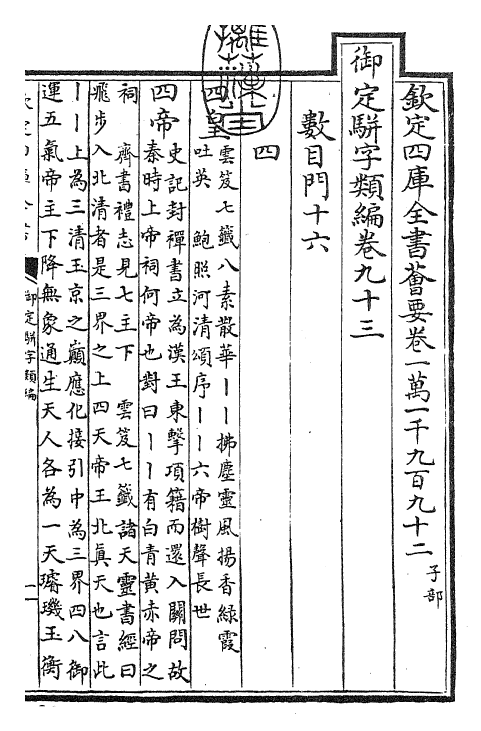 欽定四庫全書薈要卷一萬一千九百九十二 子部
御定駢字類編卷九十三
數目門十六
四
四皇 雲笈七籤八素散華丨丨拂塵靈風揚香綠霞
吐英 鮑照河清頌序丨丨六帝樹聲長世
四帝 史記封禪書立為漢王東擊項籍而還入關問故
秦時上帝祠何帝也對曰丨丨有白青黃赤帝之
祠 齊書禮志見七主下 雲笈七籤諸天靈書經曰
飛步入北清者是三界之上四天帝王北真天也言此
丨丨上為三清玉京之巔應化接引中為三界四八御
運五氣帝主下降無象通生天人各為一天璿璣玉衡
御定駢字類編
一